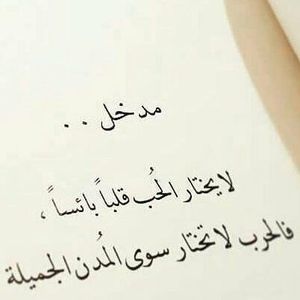 مدخل . .
لا يختار الحُب قلباً بائساً ،
فالحرب لا تختار سوى المُدن الجميلة